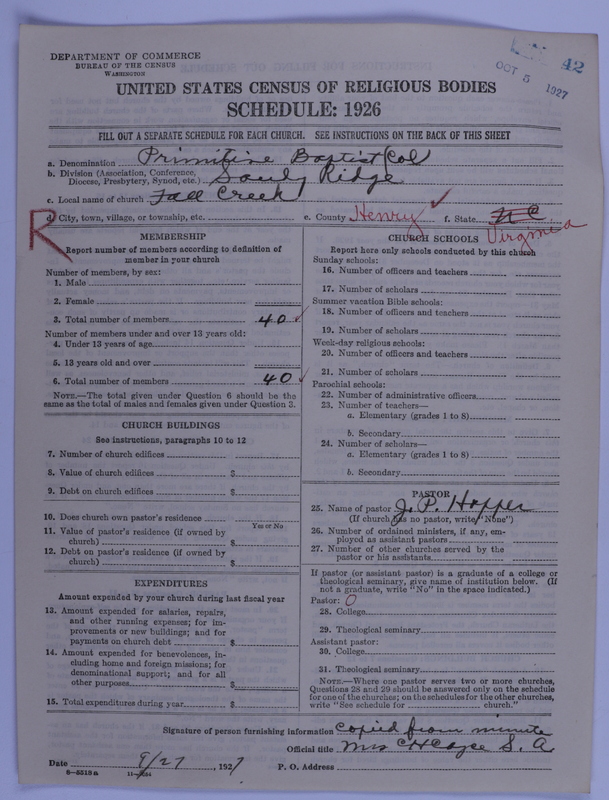 DEPARTMENT OF COMMERCE
BUREAU OF THE CENSUS
WASHINGTON
42
OCT 5 1927
UNITED STATES CENSUS OF RELIGIOUS BODIES
SCHEDULE: 1926
FILL OUT A SEPARATE SCHEDULE FOR EACH CHURCH. SEE INSTRUCTIONS ON THE BACK OF THIS SHEET
a. Denomination Primitive Baptist (Col
b. Division (Association, Conference,
Diocese, Presbytery, Synod, etc.) Sandy Ridge
c. Local name of church Fall Creek
R d. City, town, village, or township, etc. e. County Henry ✓ f. State N C
Virginia
MEMBERSHIP
Report number of members according to definition of
member in your church
Number of members, by sex:
1. Male
2. Female
3. Total number of members 40 ✓
Number of members under and over 13 years old:
4. Under 13 years of age
5. 13 years old and over
6. Total number of members 40 ✓
NOTE.—The total given under Question 6 should be the
same as the total of males and females given under Question 3.
CHURCH BUILDINGS
See instructions, paragraphs 10 to 12
7. Number of church edifices
8. Value of church edifices $
9. Debt on church edifices $
10. Does church own pastor's residence
Yes or No
11. Value of pastor's residence (if owned by
church) $
12. Debt on pastor's residence (if owned by
church) $
EXPENDITURES
Amount expended by your church during last fiscal year
13. Amount expended for salaries, repairs,
and other running expenses; for im-
provements or new buildings; and for
payments on church debt $
14. Amount expended for benevolences, in-
cluding home and foreign missions; for
denominational support; and for all
other purposes $
15. Total expenditures during year $
CHURCH SCHOOLS
Report here only schools conducted by this church
Sunday schools:
16. Number of officers and teachers
17. Number of scholars
Summer vacation Bible schools:
18. Number of officers and teachers
19. Number of scholars
Week-day religious schools:
20. Number of officers and teachers
21. Number of scholars
Parochial schools:
22. Number of administrative officers
23. Number of teachers—
a. Elementary (grades 1 to 8)
b. Secondary
24. Number of scholars—
a. Elementary (grades 1 to 8)
b. Secondary
PASTOR
25. Name of pastor J. P. Hopper
(If church has no pastor, write "None")
26. Number of ordained ministers, if any, em-
ployed as assistant pastors
27. Number of other churches served by the
pastor or his assistants
If pastor (or assistant pastor) is a graduate of a college or
theological seminary, give name of institution below. (If
not a graduate, write "No" in the space indicated.)
Pastor: 0
28. College
29. Theological seminary
Assistant pastor:
30. College
31. Theological seminary
NOTE.—Where one pastor serves two or more churches,
Questions 28 and 29 should be answered only on the schedule
for one of the churches; on the schedules for the other churches,
write "See schedule for church."
Signature of person furnishing information copied from minute
Official title Mrs C H Cayce S. A.
Date 9/27, 1927 P. O. Address